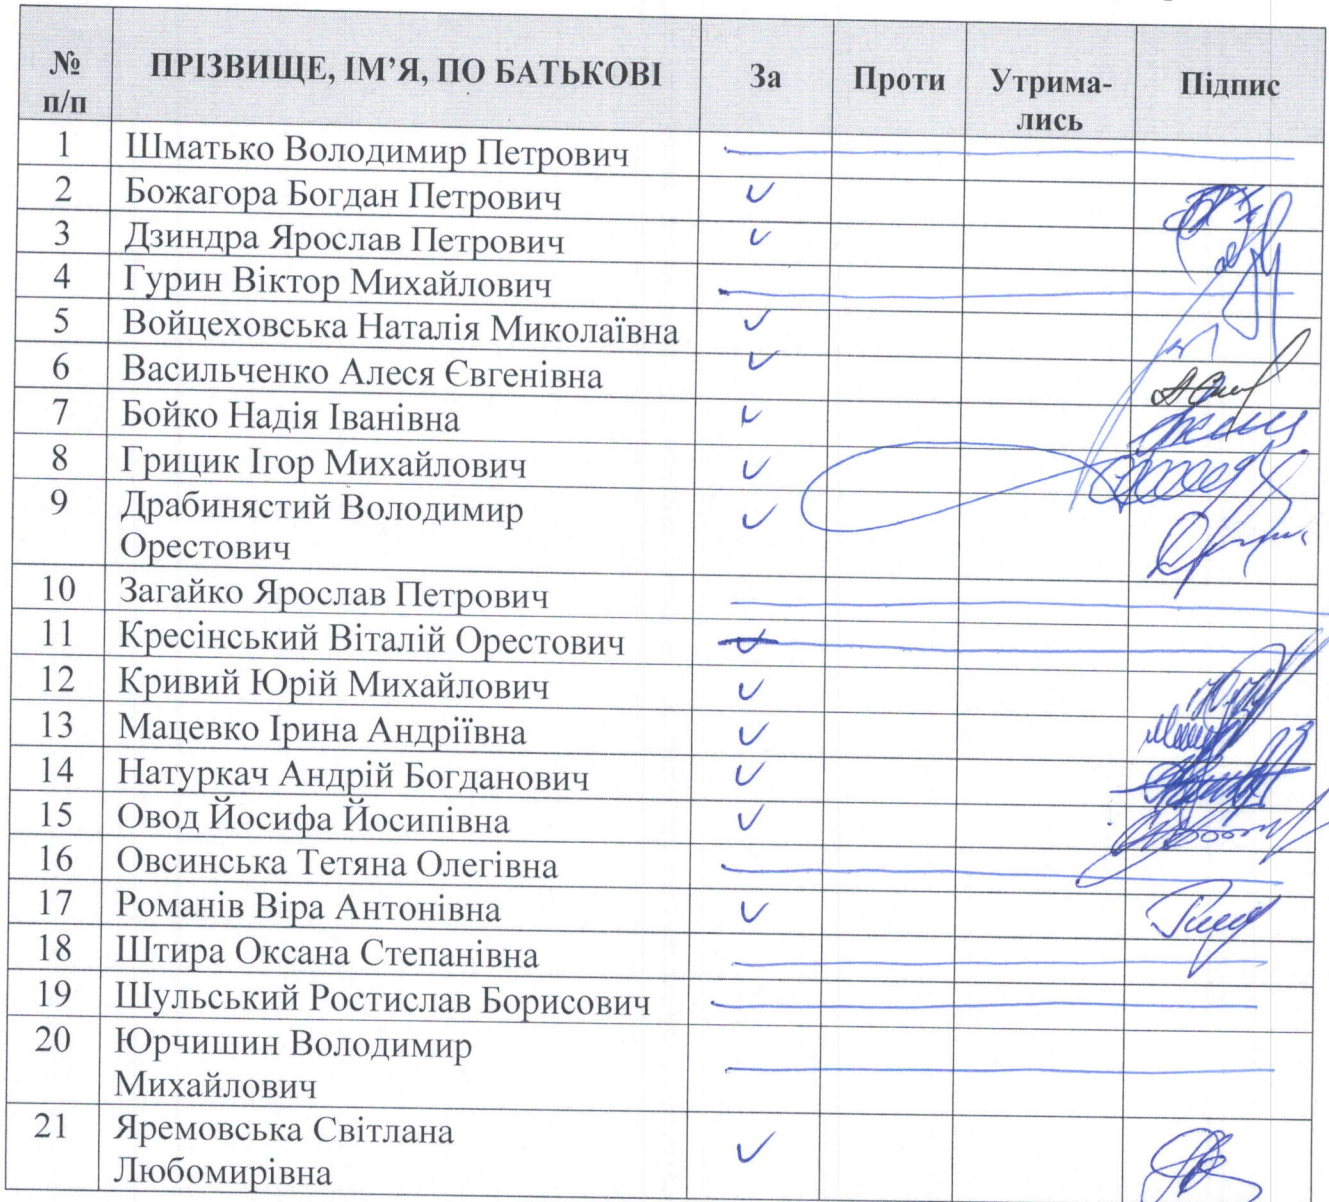 № п/п ПРІЗВИЩЕ, ІМ’Я, ПО БАТЬКОВІ За Проти Утрима-лись Підпис
1 Шматько Володимир Петрович
2 Божагора Богдан Петрович ✓
3 Дзиндра Ярослав Петрович ✓
4 Гурин Віктор Михайлович
5 Войцеховська Наталія Миколаївна ✓
6 Васильченко Алеся Євгенівна ✓
7 Бойко Надія Іванівна ✓
8 Грицик Ігор Михайлович ✓
9 Драбинястий Володимир ✓
Орестович
10 Загайко Ярослав Петрович
11 Кресінський Віталій Орестович
12 Кривий Юрій Михайлович ✓
13 Мацевко Ірина Андріївна ✓
14 Натуркач Андрій Богданович ✓
15 Овод Йосифа Йосипівна ✓
16 Овсинська Тетяна Олегівна
17 Романів Віра Антонівна ✓
18 Штира Оксана Степанівна
19 Шульський Ростислав Борисович
20 Юрчишин Володимир
Михайлович
21 Яремовська Світлана ✓
Любомирівна